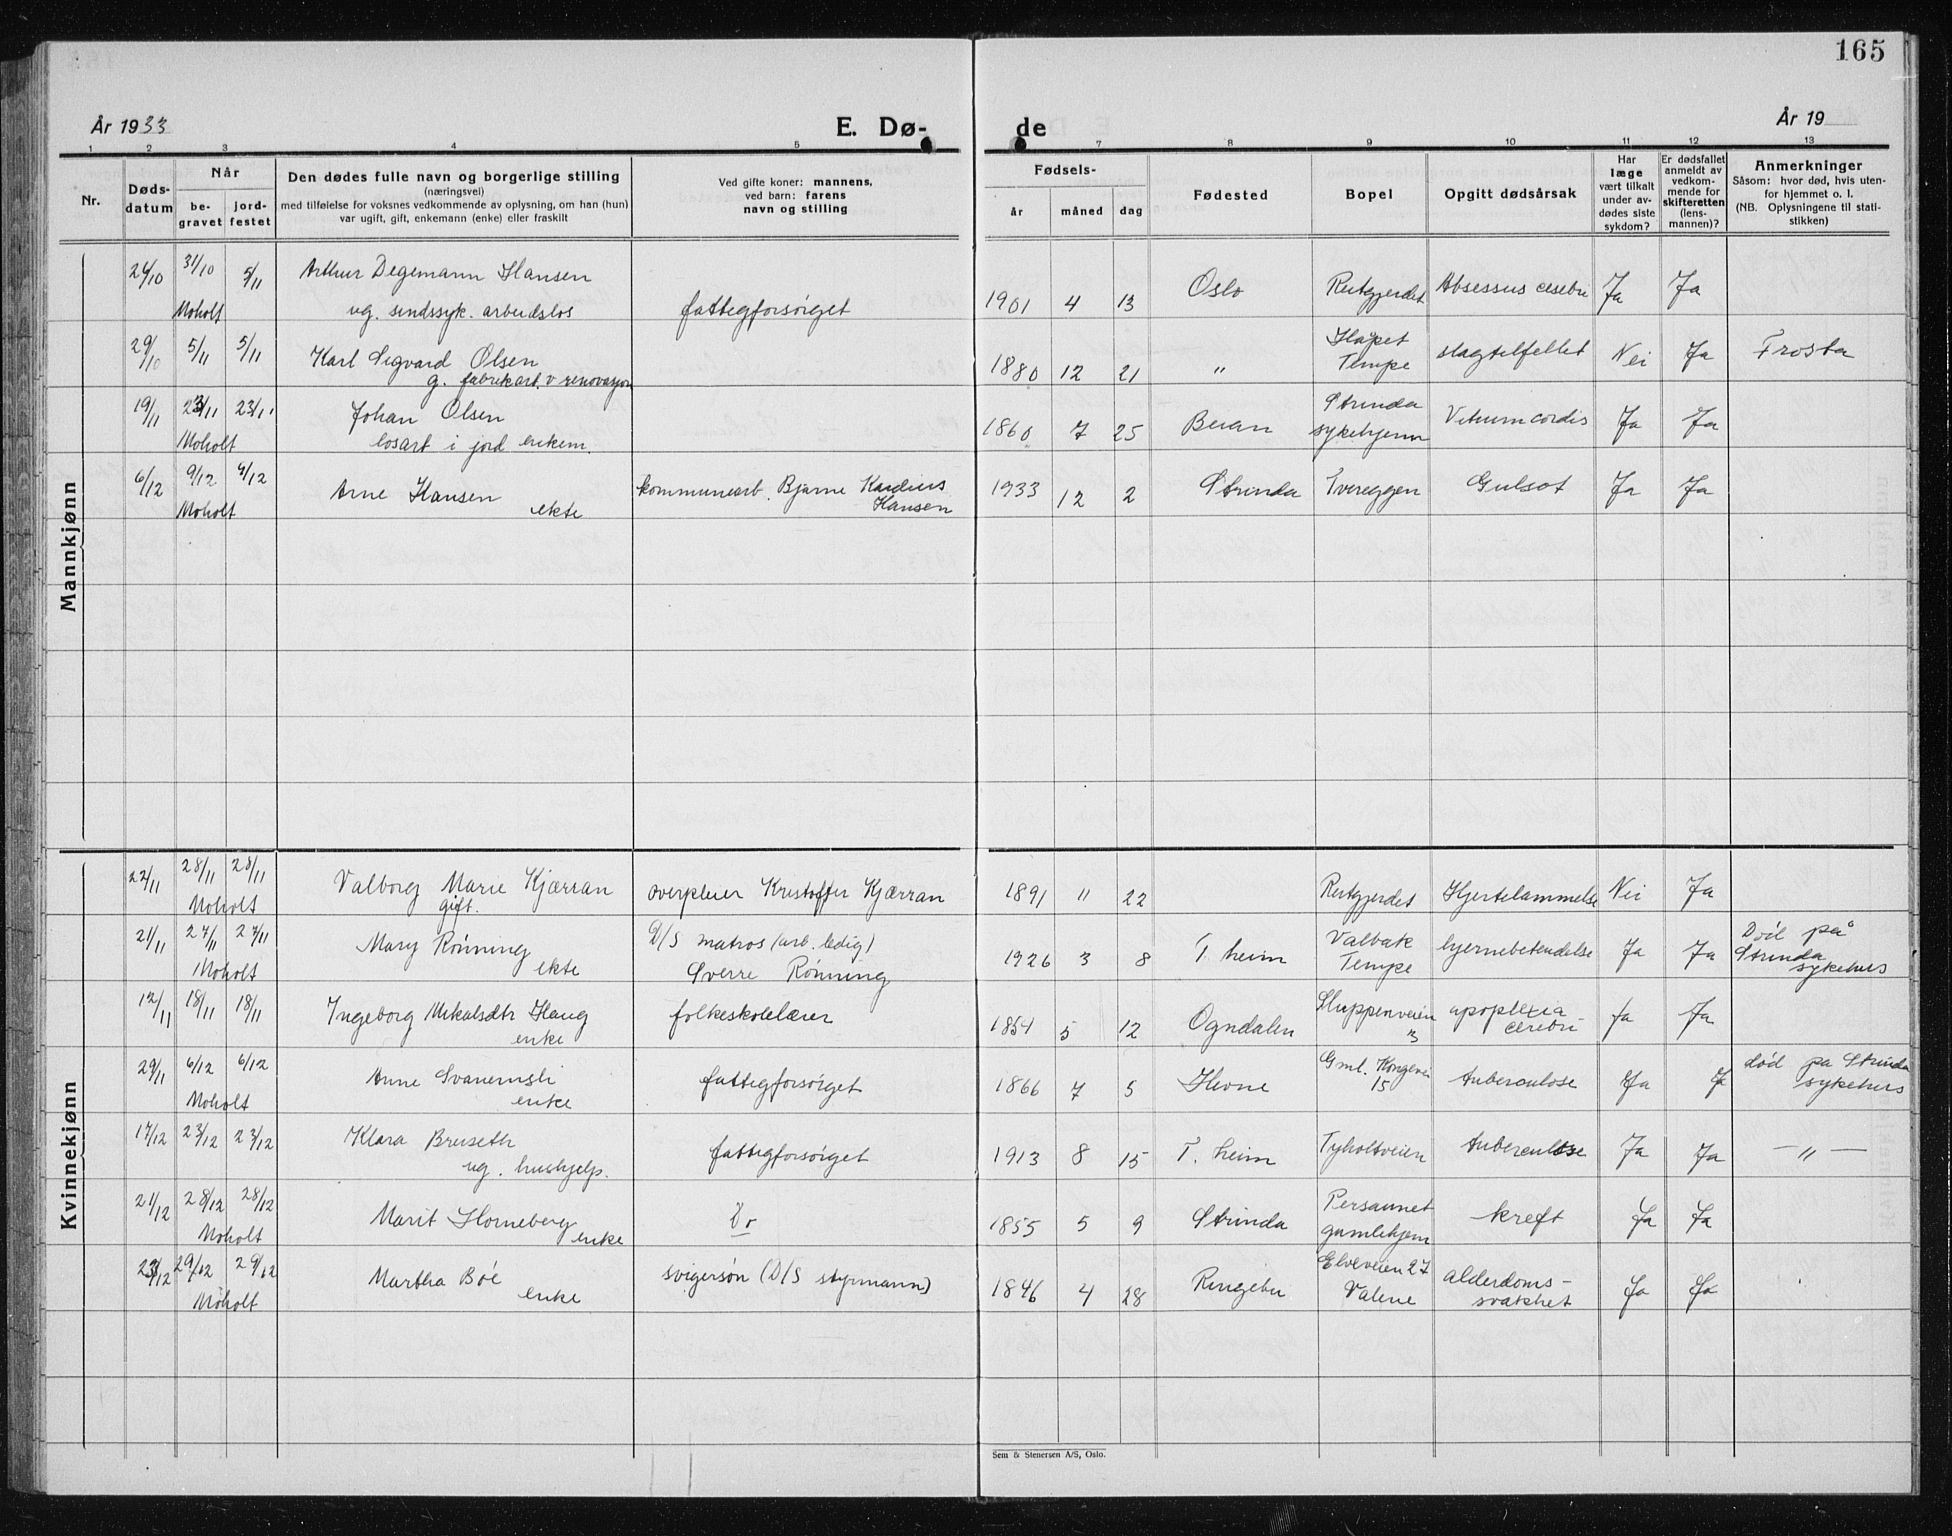 165
År 1933
E. Dø-
de
År 19
1 2 3 4 5 7 8 9 10 11 12 13
Nr.
Døds-
datum
Når
be-
gravet
jord-
festet
Den dødes fulle navn og borgerlige stilling
(næringsvei)
med tilføielse for voksnes vedkommende av oplysning, om han (hun)
var ugift, gift, enkemann (enke) eller fraskilt
Ved gifte koner: mannens,
ved barn: farens
navn og stilling
Fødsels-
år måned dag
Fødested
Bopel
Opgitt dødsårsak
Har
læge
vært tilkalt
under av-
dødes siste
sykdom?
Er dødsfallet
anmeldt av
vedkom-
mende for
skifteretten
(lens-
mannen)?
Anmerkninger
Såsom: hvor død, hvis uten-
for hjemmet o. l.
(NB. Oplysningene til stati-
stikken)
Mannkjønn
24/10 31/10 5/11 Arthur Degemann Hansen
Moholt ug. sindssyk. arbeidsløs fattigforsørget 1901 4 13 Oslo Rotgjerdet Absessus cerebri Ja Ja
29/10 5/11 5/11 Karl Sigvard Olsen
g. fabrikarb. v renovasjon 1880 12 21 " Håpet
Tempe slagtilfellet Nei Ja Frosta
19/11 23/11 23/11 Johan Olsen
Moholt losarb i jord enkem. 1860 7 25 Beian Strinda
sykehjem Vitium cordis Ja Ja
6/12 9/12 9/12 Arne Hansen
Moholt ekte kommunearb. Bjarne
Hansen 1933 12 2 Strinda Tvereggen Gulsot Ja Ja
Kvinnekjønn
22/11 28/11 28/11 Valborg Marie Kjærran
Moholt gift. overpleier Kristoffer Kjærran 1891 11 22 Rotgjerdet Hjertelammelse Nei Ja
21/11 27/11 27/11 Mary Rönning
Moholt ekte D/S matros (arb. ledig)
Sverre Rönning 1926 3 8 T. heim Valbak
Tempe hjernebetendelse Ja Ja Död på
Strinda
sykehus
12/11 18/11 18/11 Ingeborg Mikalsdtr Haug
enke folkeskolelærer 1854 5 12 Ogndalen Sluppenveien
3 apoplexia
cerebri Ja Ja
29/11 6/12 6/12 Anne Svanemsli
Moholt enke fattigforsörget 1866 7 5 Hevne Gml. Kongevei
15 tuberculose Ja J död på Strinda
sykehus
17/12 23/12 23/12 Klara Bruseth
ug. hushjelp. fattigforsörget 1913 8 15 T. heim Tyholtveien tuberculose Ja Ja — " —
21/12 28/12 28/12 Marit Horneberg
Moholt enke Do 1855 5 9 Strinda Persaunet
gamlehjem kreft Ja Ja
23/12 29/12 29/12 Martha Böe
Moholt enke svigersön (D/S styrmann) 1846 4 28 Ringebu Elveveien 27
Valene alderdoms-
svakhet Ja Ja
Sem & Stenersen A/S, Oslo.